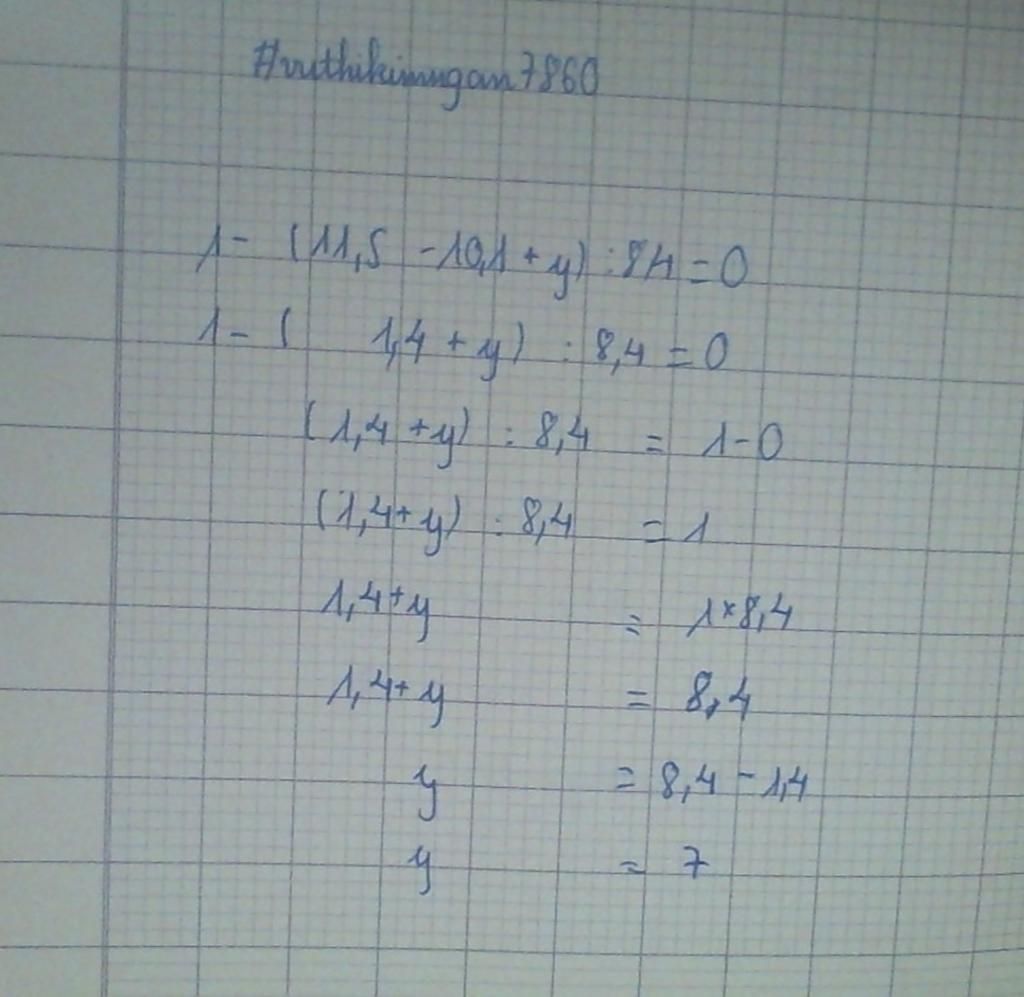 #vuthikimngan7860
1- (11,5 -10,1 + y) : 8,4 = 0
1- ( 1,4 + y) : 8,4 = 0
(1,4 + y) : 8,4 = 1-0
(1,4+ y) : 8,4 = 1
1,4+y = 1×8,4
1,4+ y = 8,4
y = 8,4 - 1,4
y = 7